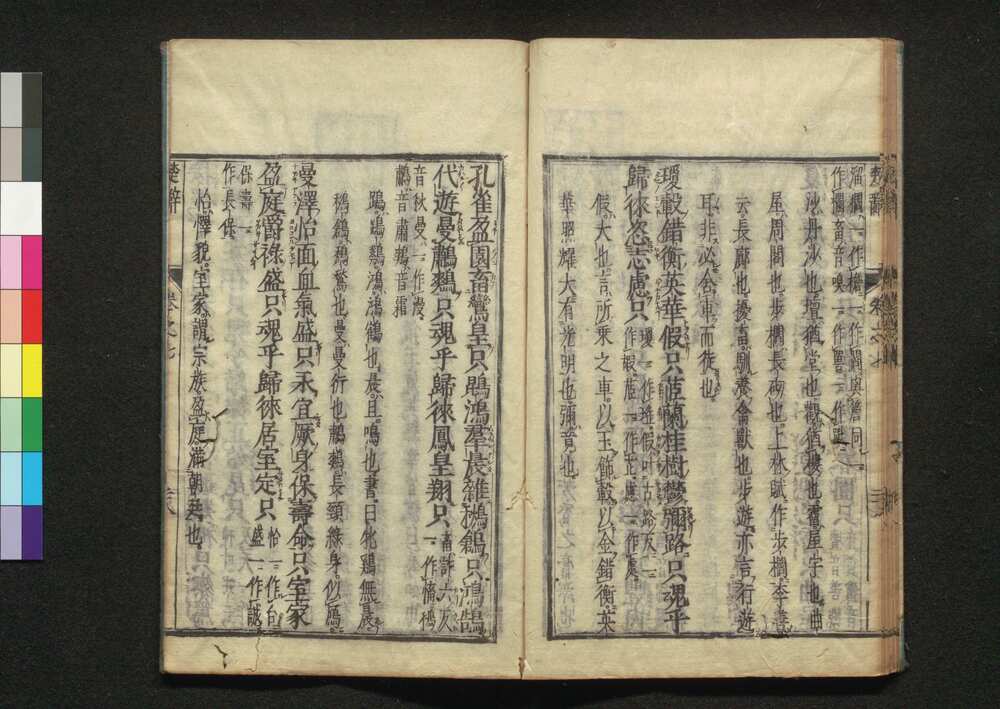 楚辭
卷之七
溜欄一作檐一作閻與簷同
沙丹沙也壇猶堂也觀猶樓也霤屋宇也曲
屋周閣也步欄長砌也上林賦作步欄李善
云長廊也擾畜馴養禽獸也步遊亦言行遊
耳非必舍車而徒也
瓊轂錯衡英華假只茝蘭桂樹鬱彌路只魂乎
歸徠恣志慮只
瓊一作瑤假叶古路反一
作嘏茝一作芷慮一作處
假大也言所乘之車以玉飾轂以金錯衡英
華照燿大有光明也彌竟也
孔雀盈園畜鸞皇只鵾鴻羣晨雜鶖鶬只鴻鵠
代遊曼鷫鷞只魂乎歸徠鳳皇翔只
畜許六反
一作慉鶖
音秋曼一作漫
鷫音肅鷞音霜
鵾鵾鷄鴻鴻鶴也晨旦鳴也書曰牝鷄無晨
鶖鶬鶖也曼曼衍也鷫鷞長頸綠身似鴈
曼澤怡面血氣盛只永宜厥身保壽命只室家
盈庭爵祿盛只魂乎歸徠居室定只
怡一作台
盛一作誠
保壽一
作長保
怡懌貌室家謂宗族盈庭滿朝廷也
楚辭
卷之七